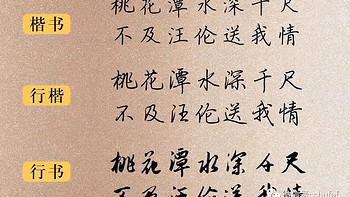 楷书
桃花潭水深千尺
不及汪伦送我情
行楷
桃花潭水深千尺
不及汪伦送我情
行书
桃花潭水深千尺
不及汪伦送我情